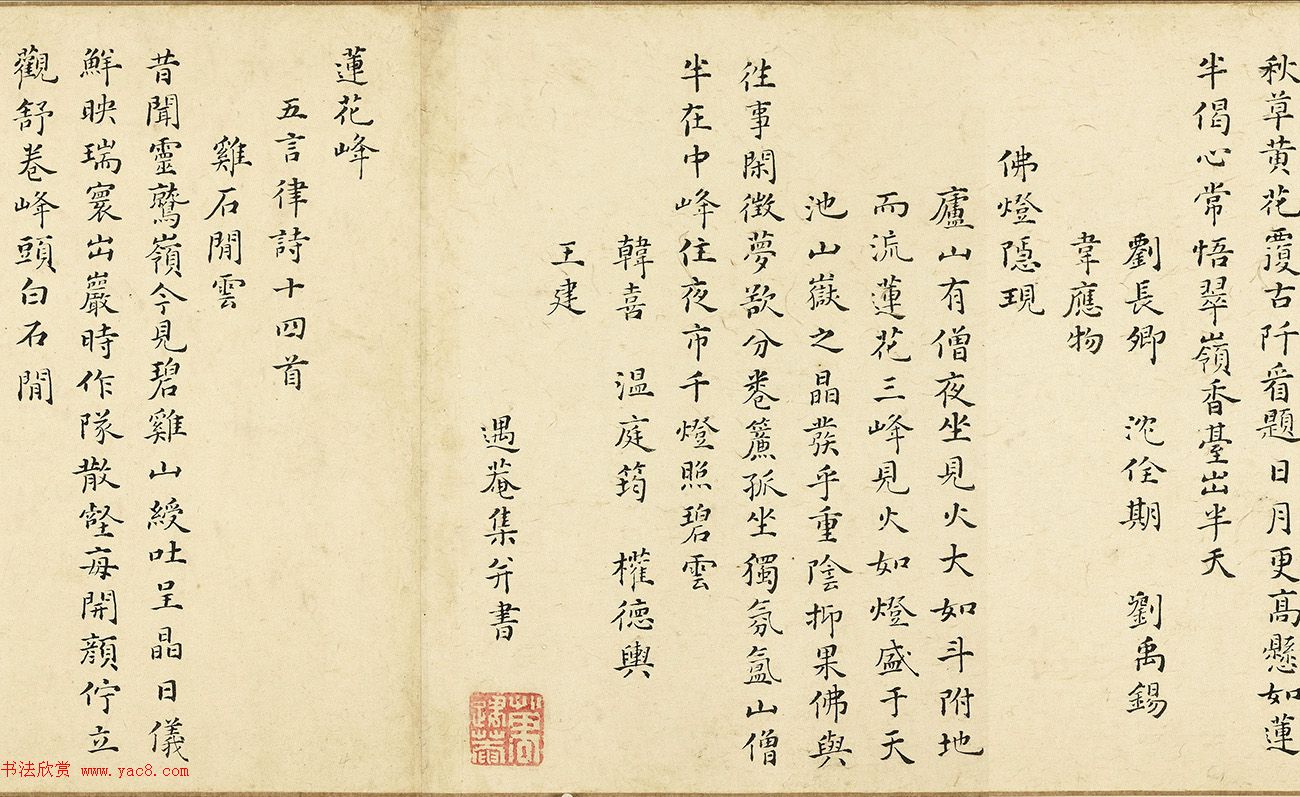 秋草黄花覆古阡看題日月更高懸如蓮
半偈心常悟翠嶺香臺出半天
劉長卿 沈佺期 劉禹錫
韋應物
佛燈隱現
廬山有僧夜坐見火大如斗附地
而流蓮花三峰見火如燈盛于天
池山嶽之晶發乎重陰抑果佛與
徃事閑徴夢欲分卷簾孤坐獨氛氳山僧
半在中峰住夜市千燈照碧雲
韓喜 温庭筠 權德輿
王建
遇菴集弁書
蓮花峰
五言律詩十四首
雞石閒雲
昔聞靈鷲嶺今見碧雞山綬吐呈晶日儀
鮮映瑞寰出巖時作隊散壑每開顔佇立
觀舒卷峰頭白石閒
书法欣赏 www.yac8.com